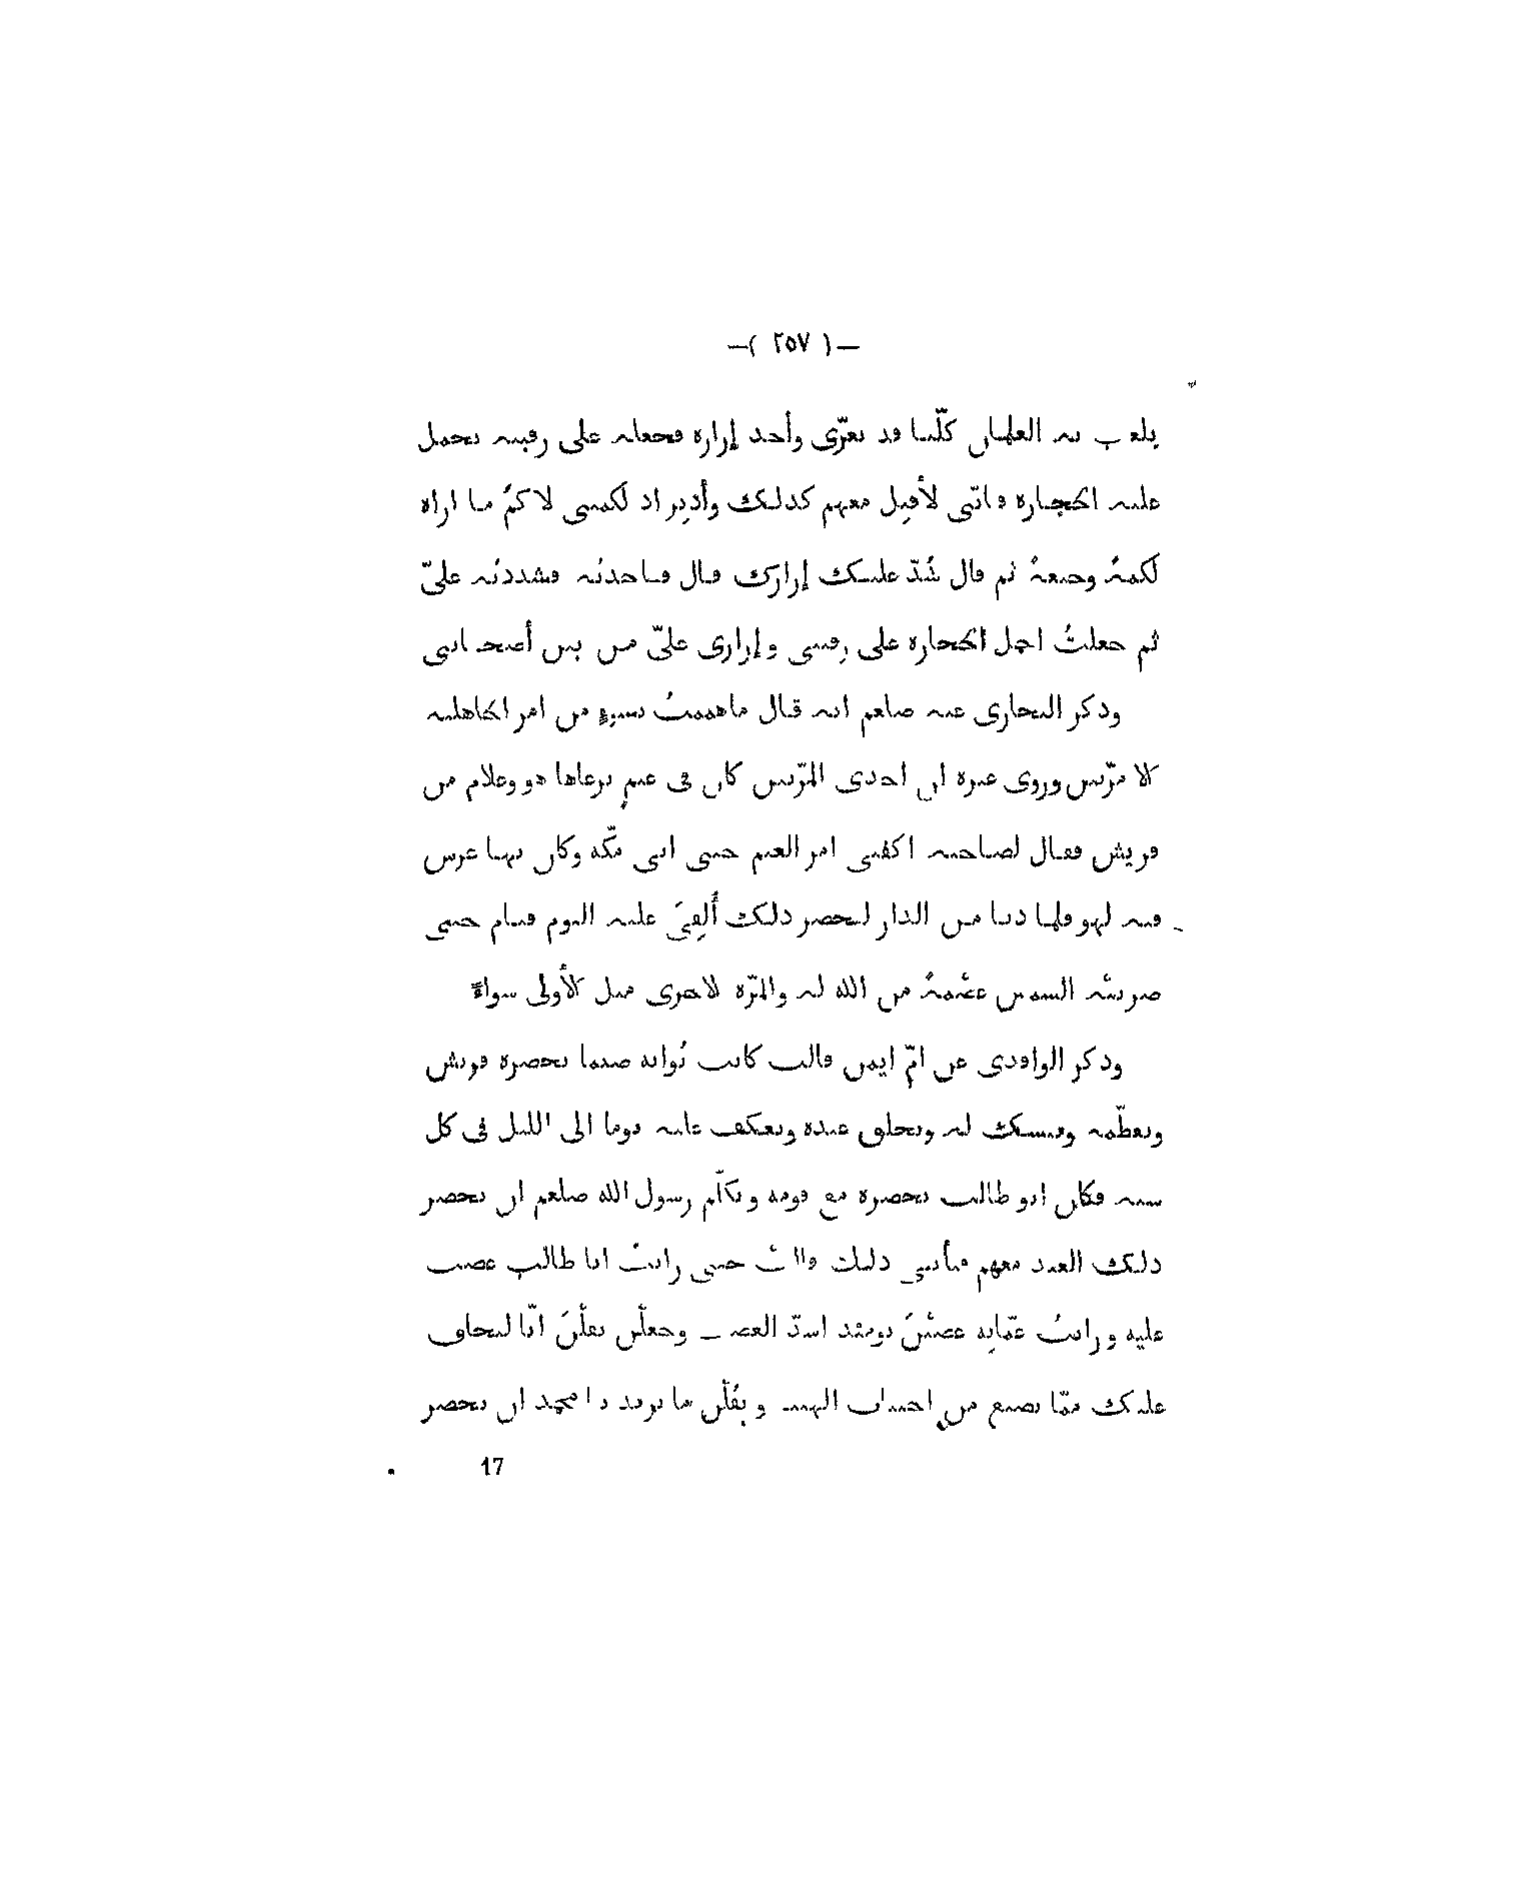 —( ٢٥٧ )—
يلعب به الغلمان كلّنا قد تعرّى وأخذ إزاره فجعله على رقبته يحمل
عليه الحجارة فانّى لأقبل معهم كذلك وأدبر اذ لكمنى لاكمٌ ما اراه
لكمةً وجيعةً ثم قال شُدّ عليك إزارك قال فاخذته فشددته علىّ
ثم جعلتُ احمل الحجارة على رقبتى وإزارى علىّ من بين أصحابى
وذكر البخارى عنه صلعم انه قال ما هممتُ بسوءٍ من امر الجاهلية
الا مرّتين وروى غيره ان احدى المرّتين كان فى غنمٍ يرعاها هو وغلام من
قريش فقال لصاحبه اكفنى امر الغنم حتى اتى مكّة وكان بها عرس
فيه لهو فلما دنا من الدار ليحضر ذلك أُلقِىَ عليه النوم فنام حتى
ضربته الشمس عصمةً من الله له والمرّة الاخرى مثل الأولى سواءً
وذكر الواقدى عن امّ ايمن قالت كانت بُوانة صنما يحضره قريش
وتعظّمه وتنسك له وتحلق عنده وتعكف عليه يوما الى الليل فى كل
سنة فكان ابو طالب يحضره مع قومه ويكلّم رسول الله صلعم ان يحضر
ذلك العيد معهم فيأبى ذلك قالت حتى رايتُ ابا طالب غضب
عليه ورايتُ عمّاته غضبْنَ يومئذ اشدّ الغضب وجعلْن يقلْنَ انّا لنخاف
عليك ممّا تصنع من اجتناب الهتنا ويقُلْن ما تريد يا محمد ان تحضر
17